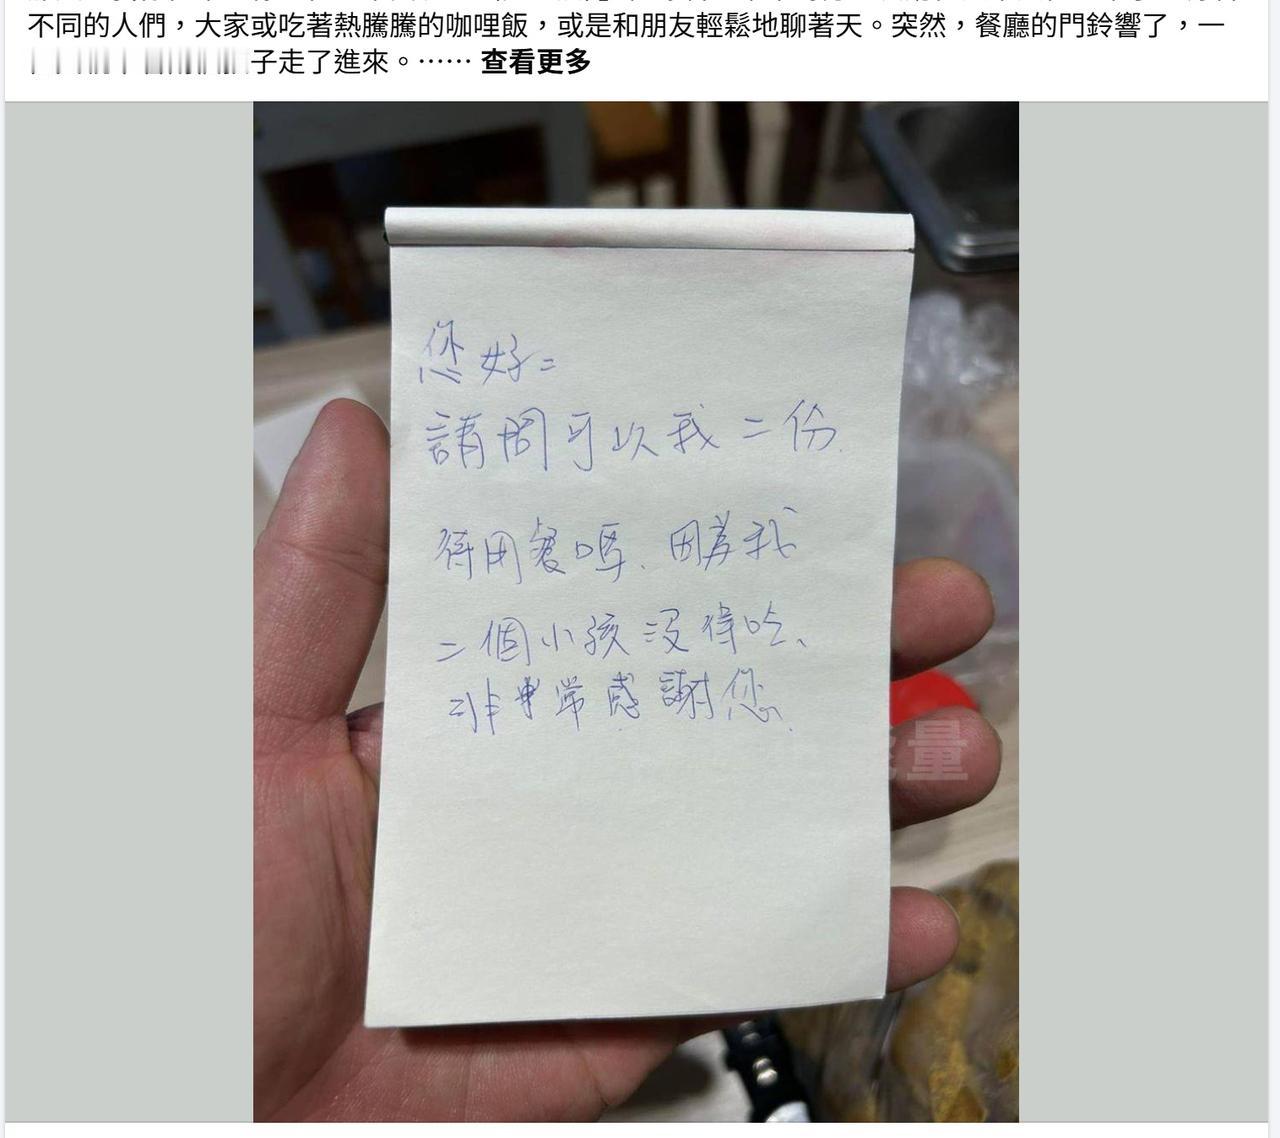 不同的人們，大家或吃著熱騰騰的咖哩飯，或是和朋友輕鬆地聊著天。突然，餐廳的門鈴響了，一
子走了進來。…… 查看更多
您好=
請問可以我二份
待用餐嗎、因為我
二個小孩沒得吃、
非常感謝您
量